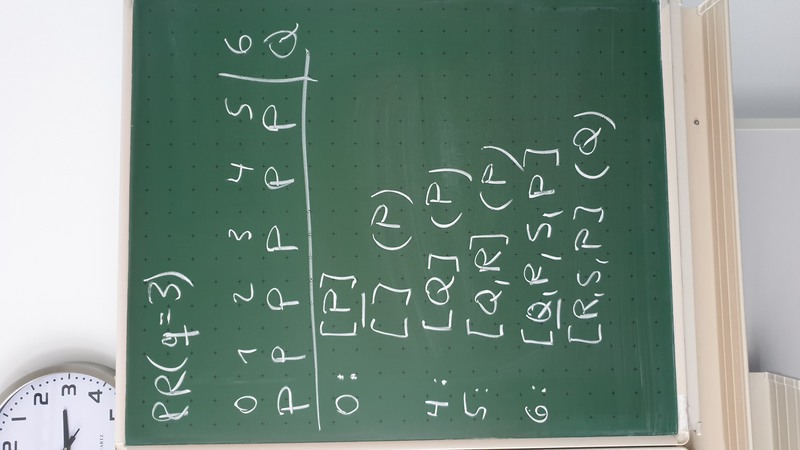 RR(q=3)
0 1 2 3 4 5 | 6
P P P P P P | Q
0: [P]
[] (P)
4: [Q] (P)
5: [Q,R] (P)
6: [Q,R,S,P]
[R,S,P] (Q)
1 2 3 4